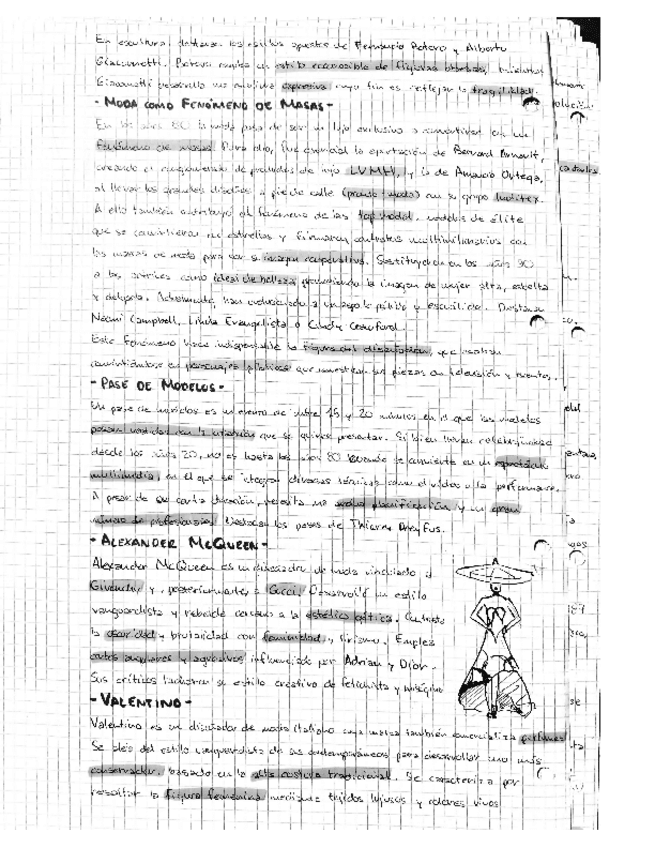 En escultura destacan los estilos opuestos de Fernando Botero y Alberto
Giacometti. Botero emplea un estilo reconocible de figuras obesas, mientras
Giacometti desarrolla una escultura expresiva cuyo fin es reflejar la fragilidad.
- MODA COMO FENÓMENO DE MASAS -
En los años 80 la moda pasa de ser un lujo exclusivo a convertirse en un
fenómeno de masas. Para ello, fue esencial la aportación de Bernard Arnault,
creando el conglomerado de productos de lujo LVMH, y la de Amancio Ortega,
al llevar los grandes diseños a pie de calle con su grupo Inditex.
A ello también contribuyó el fenómeno de las top model, modelos de élite
que se convirtieron en estrellas y firmaron contratos multimillonarios con
las marcas de moda para dar su imagen corporativa. Sustituyeron en los años 90
a las actrices como ideal de belleza, promoviendo la imagen de mujer alta, esbelta
y delgada. Actualmente, han evolucionado a un esquelético. Destacan
Naomi Campbell, Linda Evangelista o Cindy Crawford.
Este fenómeno hace indispensable la figura del diseñador, que acaban
convirtiéndose en personajes públicos que muestran sus piezas en televisión y eventos.
- PASE DE MODELOS -
Un pase de modelos es un evento de entre 15 y 20 minutos en el que las modelos
posan vestidas con la colección que se quiere presentar. Si bien llevan celebrándose
desde los años 20, no es hasta los años 80 cuando se convierte en un espectáculo
multimedia, en el que se integran diversas técnicas como el vídeo o la performance.
A pesar de su corta duración, necesita una amplia planificación y un gran
número de profesionales. Destacan los pases de Thierry Dreyfus.
- ALEXANDER McQUEEN -
Alexander McQueen es un diseñador de moda vinculado a
Givenchy y, posteriormente, a Gucci. Desarrolló un estilo
vanguardista y rebelde cercano a la estética gótica. Contrasta
la oscuridad y brutalidad con feminidad y lirismo. Emplea
cortes y agresivos influenciado por Adrian y Dior.
Sus críticos tacharon su estilo creativo de fetichista y misógino
- VALENTINO -
Valentino es un diseñador de moda italiano cuya marca también comercializa perfumes
Se aleja del estilo vanguardista de sus contemporáneos para desarrollar uno más
conservador, basado en la alta costura tradicional. Se caracteriza por
resaltar la figura femenina mediante tejidos lujosos y colores vivos